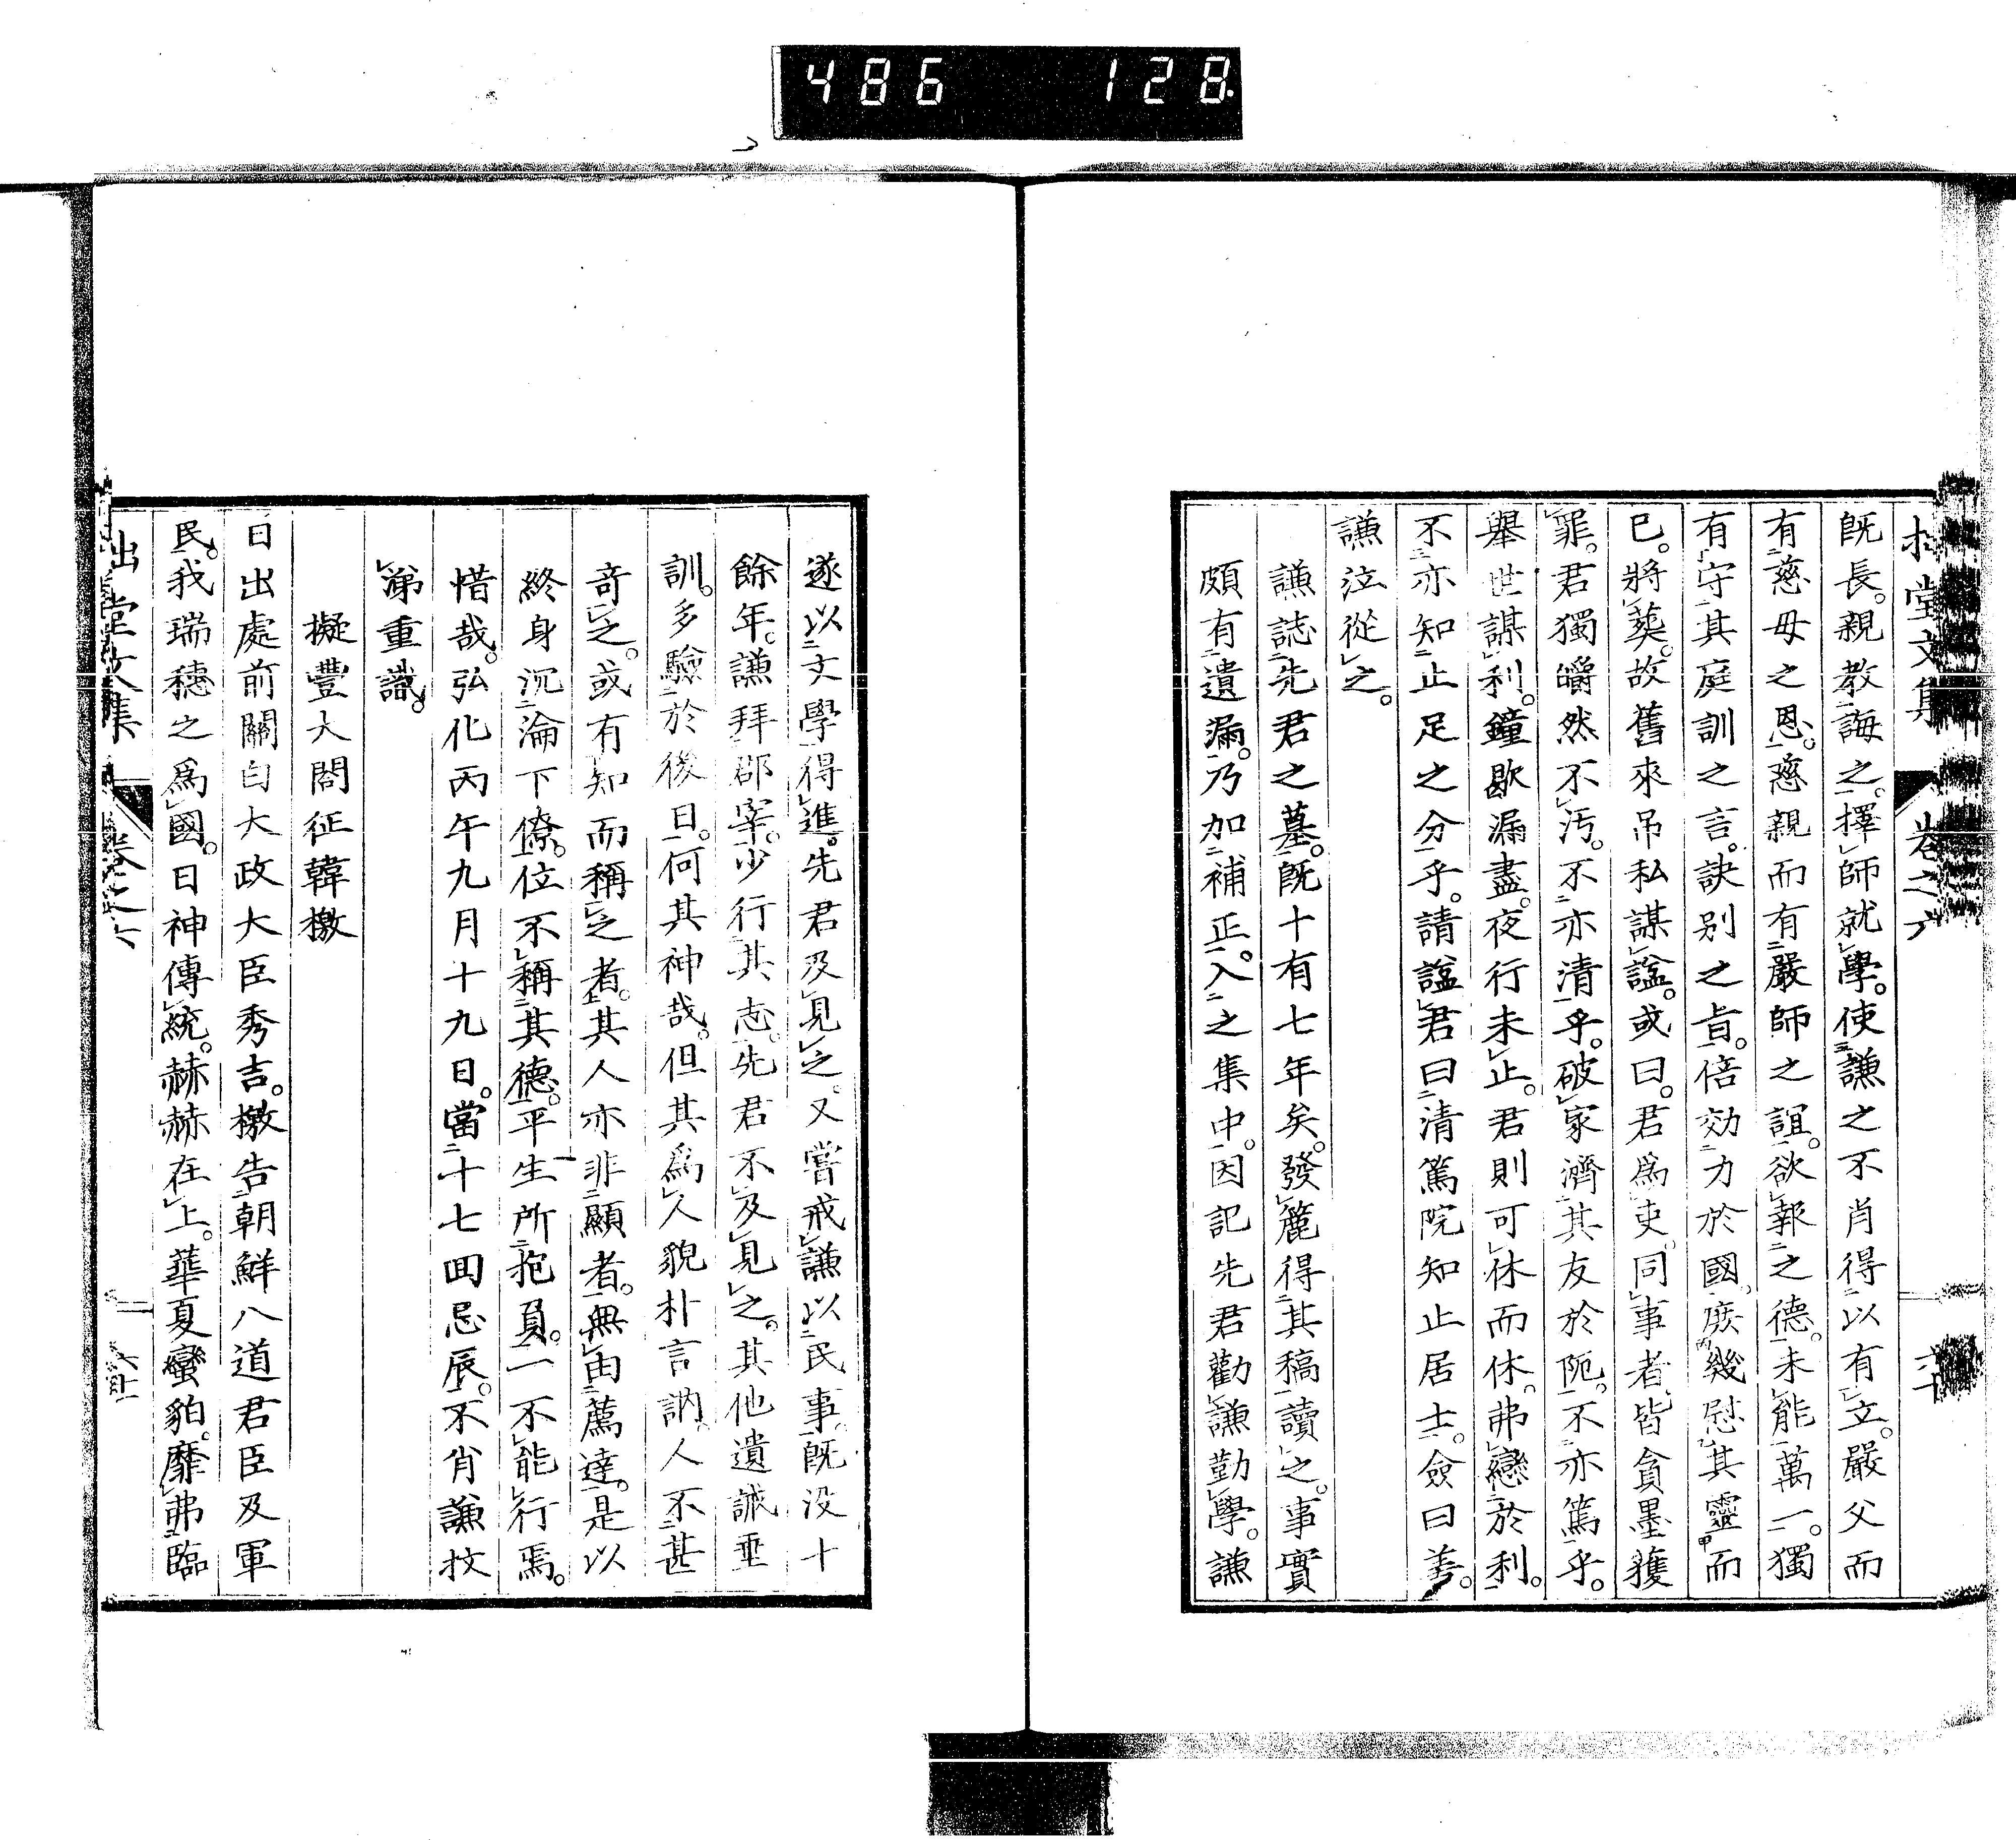 486 128
拙堂文集 卷之六 六十
既長。親教誨之。擇師就學。使謙之不肖得以有立。嚴父而
有慈母之恩。慈親而有嚴師之誼。欲報之德。未能萬一。獨
有守其庭訓之言。訣別之旨。倍効力於國。庶幾慰其靈而
已。將葬。故舊來吊私謀諡。或曰。君爲吏。同事者。皆貪墨獲
罪。君獨皭然不汚。不亦清乎。破家濟其友於阨。不亦篤乎。
舉世謀利。鐘歇漏盡。夜行未止。君則可休而休。弗戀於利。
不亦知止足之分乎。請諡君曰清篤院知止居士。僉曰善。
謙泣從之。
謙誌先君之墓。既十有七年矣。發簏得其稿讀之。事實
頗有遺漏。乃加補正。入之集中。因記先君勸謙勤學。謙
遂以文學得進。先君及見之。又嘗戒謙以民事。既没十
餘年。謙拜郡宰。少行其志。先君不及見之。其他遺誡垂
訓。多驗於後日。何其神哉。但其爲人貌朴言訥。人不甚
奇之。或有知而稱之者。其人亦非顯者。無由薦達。是以
終身沉淪下僚。位不稱其德。平生所抱負。一不能行焉。
惜哉。弘化丙午九月十九日。當十七回忌辰。不肖謙抆
涕重識。
擬豐大閤征韓檄
日出處前關白大政大臣秀吉。檄告朝鮮八道君臣及軍
民。我瑞穗之爲國。日神傳統。赫赫在上。華夏蠻貊。靡弗臨
拙堂文集 卷之六